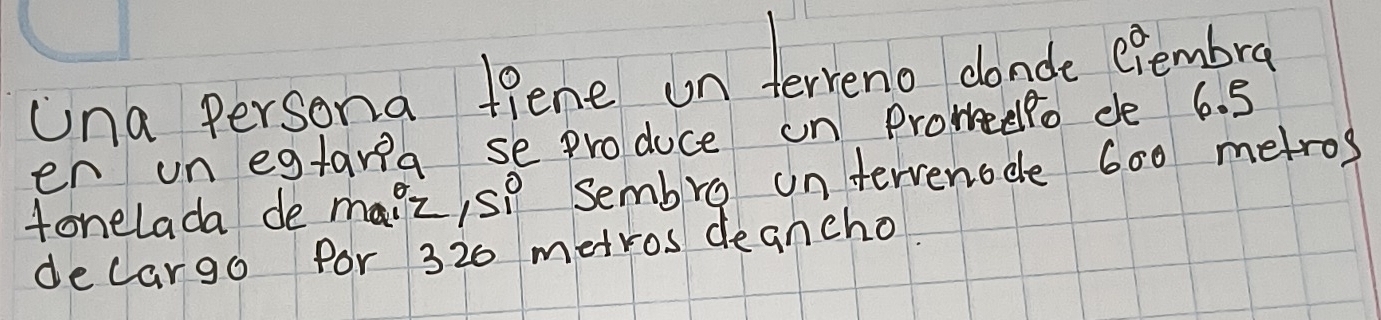 Una Persona tiene un terreno donde Ciembra
en un egtaria se produce un Promedio de 6.5
tonelada de maiz, si sembro un terrenode 600 metros
de Largo Por 320 metros de ancho.